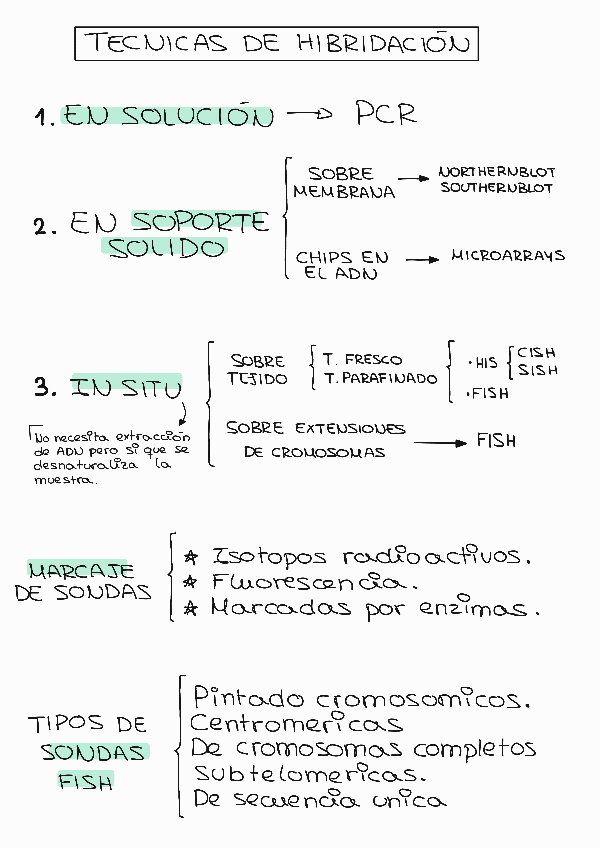 TECNICAS DE HIBRIDACIÓN
1. EN SOLUCIÓN → PCR
2. EN SOPORTE
SOLIDO
SOBRE
MEMBRANA
→ NORTHERNBLOT
SOUTHERNBLOT
CHIPS EN
EL ADN
→ MICROARRAYS
3. IN SITU
No necesita extracción
de ADN pero si que se
desnaturaliza la
muestra.
SOBRE
TEJIDO
T. FRESCO
T. PARAFINADO
· HIS
CISH
SISH
· FISH
SOBRE EXTENSIONES
DE CROMOSOMAS
→ FISH
MARCAJE
DE SONDAS
★ Isotopos radioactivos.
★ Fluorescencia.
★ Marcadas por enzimas.
TIPOS DE
SONDAS
FISH
Pintado cromosomicos.
Centromericas
De cromosomas completos
Subtelomericas.
De secuencia unica